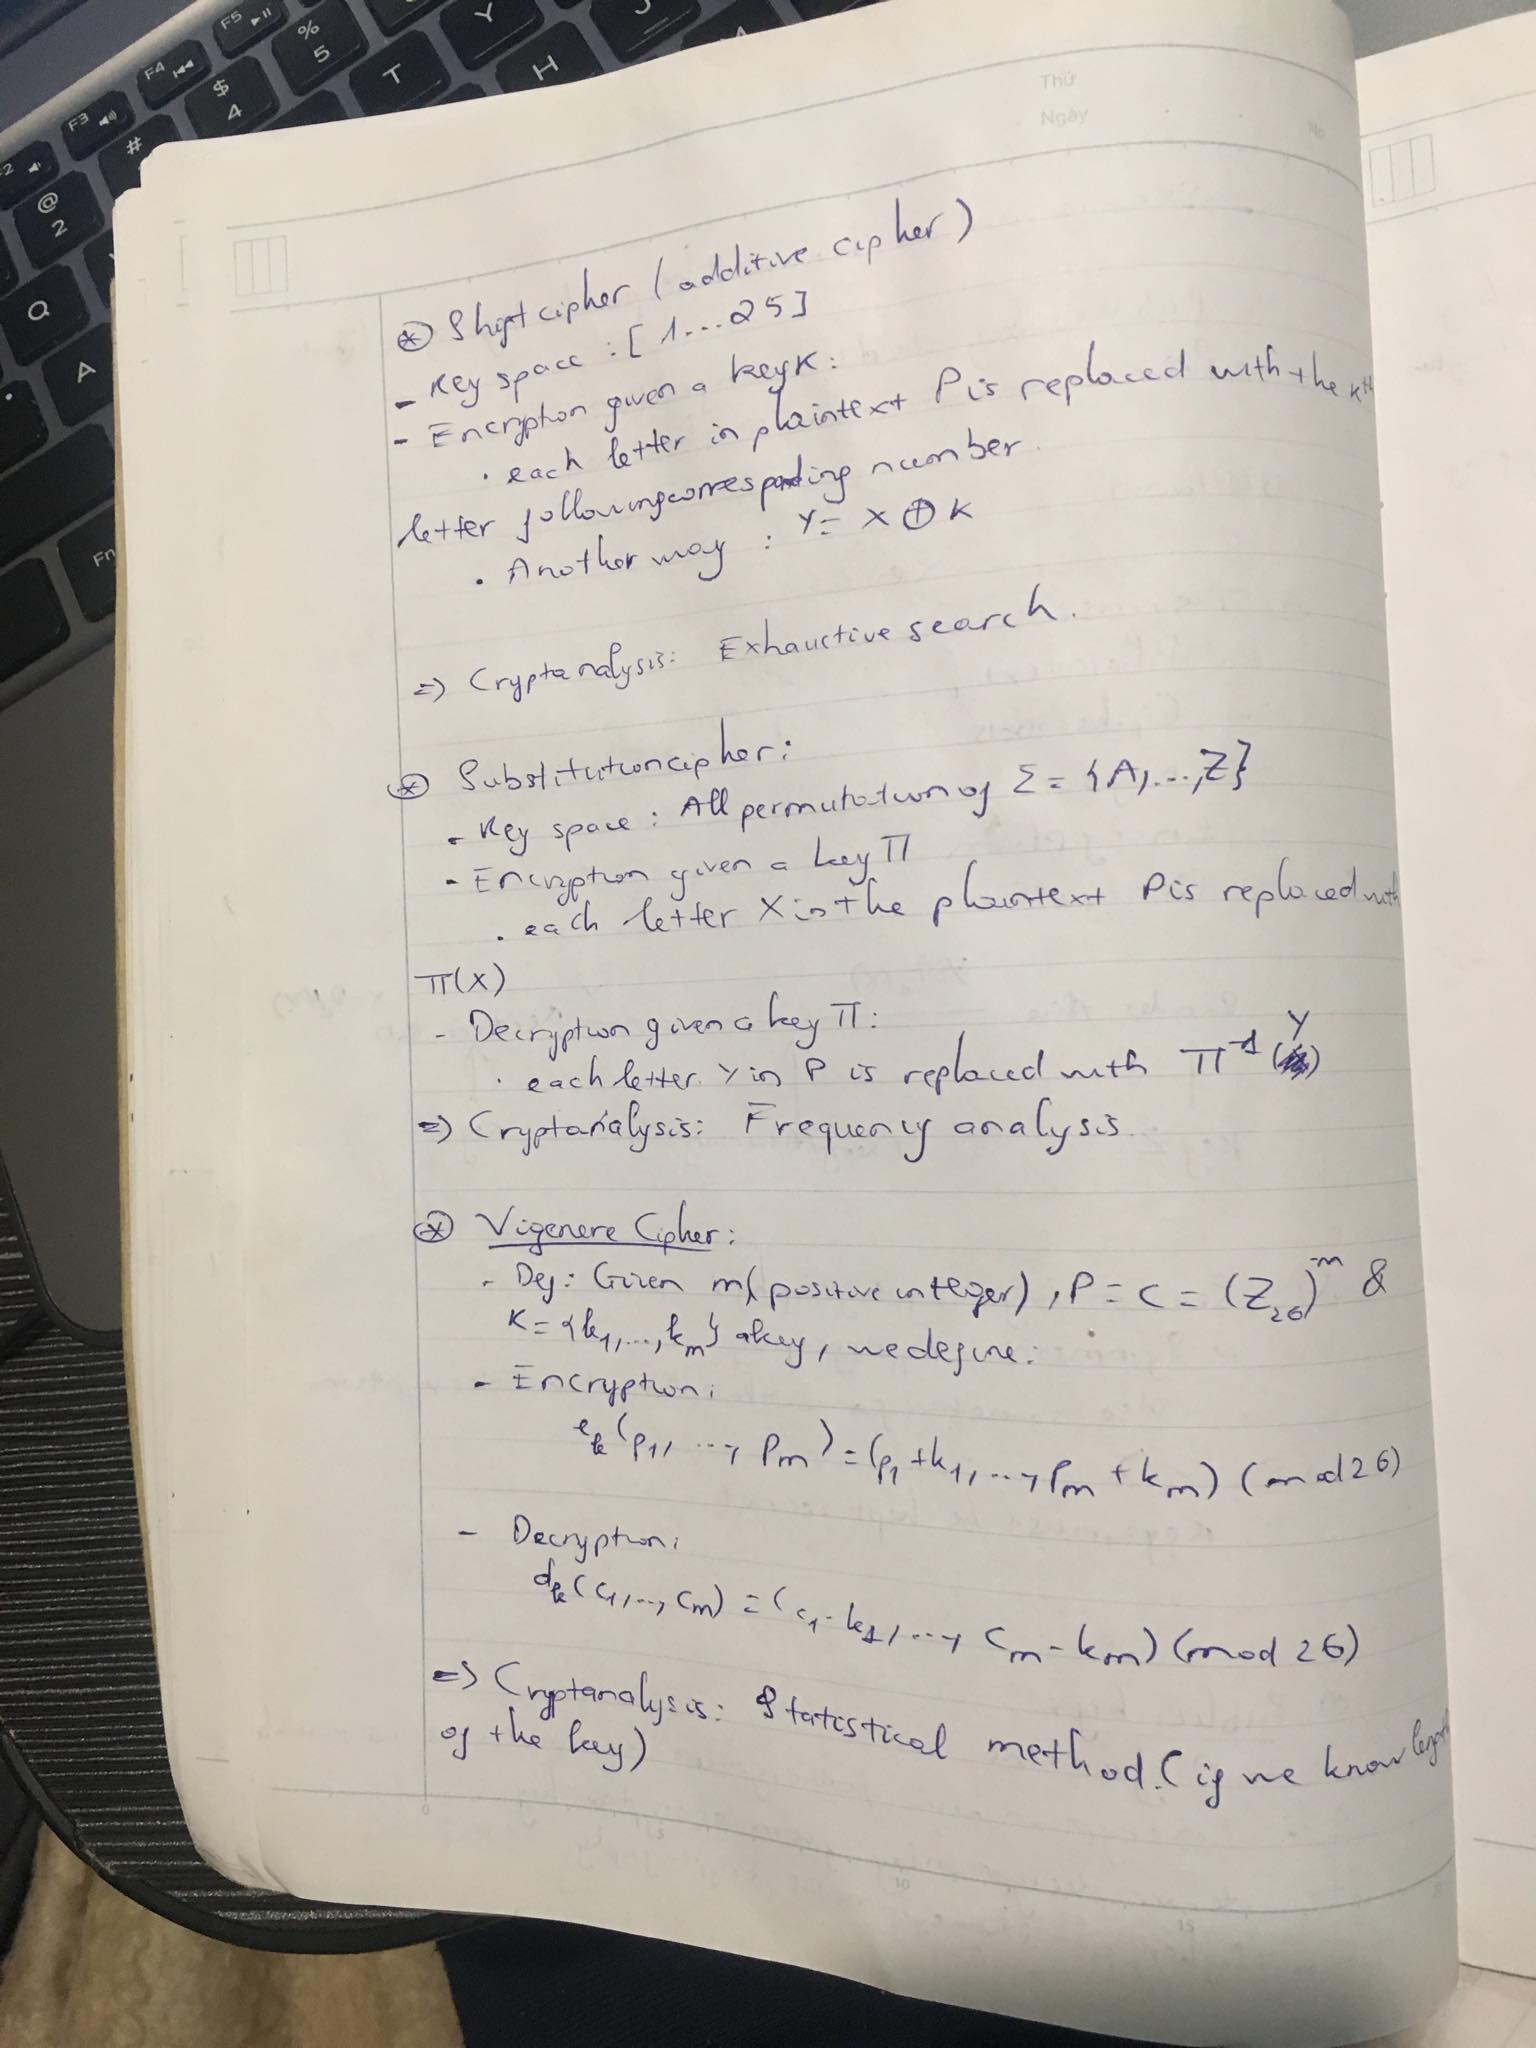 F2
F3
F4
F5
@
2
#
$
4
%
5
T
Y
H
J
Q
A
Fn
Thứ
Ngày
No
⊛ Shift cipher (additive cipher)
- Key space : [1...25]
- Encryption given a key K :
. each letter in plaintext P is replaced with the Kth
letter following corresponding number.
. Another way : Y = X ⊕ K
=> Cryptanalysis: Exhauctive search.
⊛ Substitution cipher :
- Key space : All permutation of Σ = {A,...,Z}
- Encryption given a key Π
. each letter X in the plaintext P is replaced with
Π(X)
- Decryption given a key Π :
. each letter Y in P is replaced with Π⁻¹(Y)
=> Cryptanalysis: Frequency analysis.
⊛ Vigenere Cipher :
- Def : Given m (positive integer), P = C = (Z₂₆)ᵐ &
K = {k₁,...,kₘ} a key, we define :
- Encryption :
eₖ(p₁, ..., pₘ) = (p₁ + k₁, ..., pₘ + kₘ) (mod 26)
- Decryption :
dₖ(c₁,..., cₘ) = (c₁ - k₁, ..., cₘ - kₘ) (mod 26)
=> Cryptanalysis : Statistical method. (if we know length
of the key)
0
5
10
15